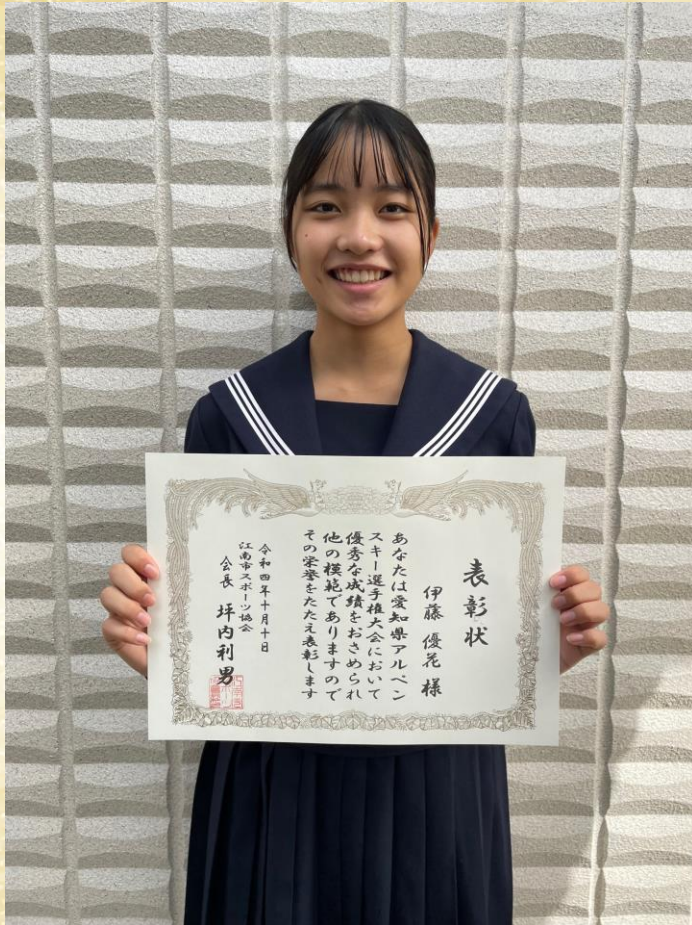 表彰状
伊藤優花様
あなたは愛知県アルペン
スキー選手権大会において
優秀な成績をおさめられ
他の模範でありますので
その栄誉をたたえ表彰します
令和四年十月十日
江南市スポーツ協会
会長 坪内利男